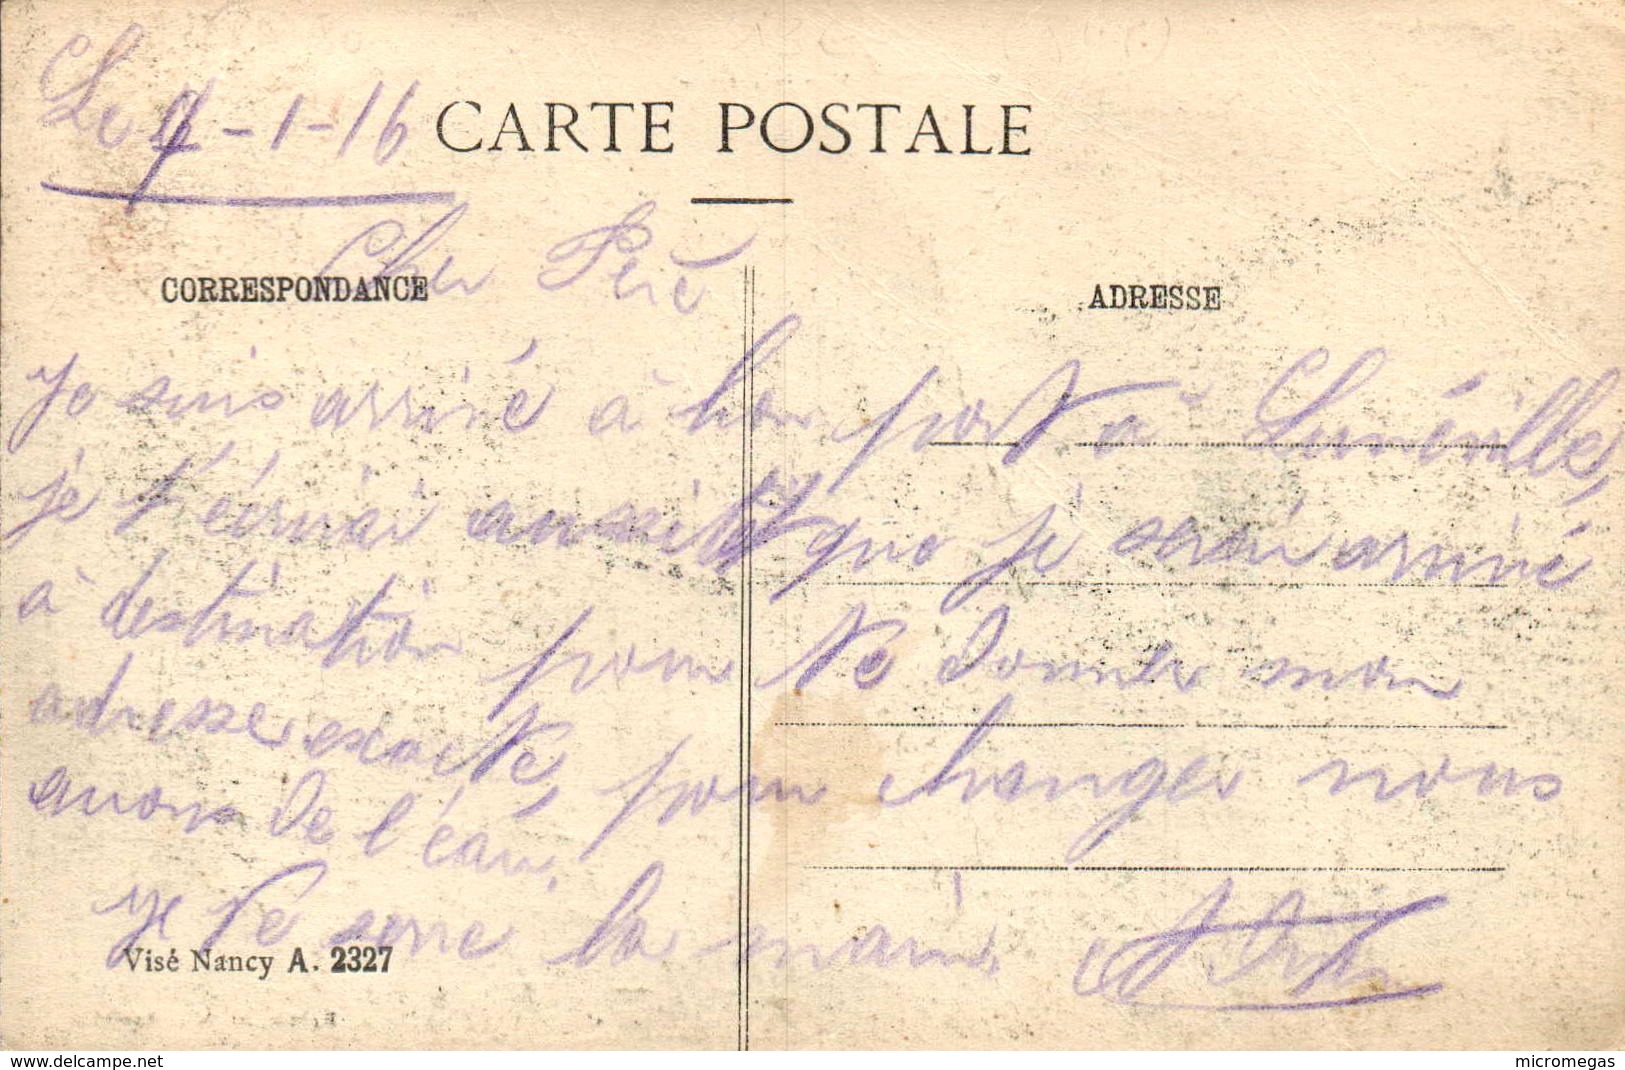 Le 9-1-16
CARTE POSTALE
Cher Père
CORRESPONDANCE
ADRESSE
Je suis arrivé à bon port à Lunéville,
je t'écrirai aussitôt que je serai arrivé
à destination pour te donner mon
adresse exacte, pour changer nous
avons de l'eau.
Je te serre la main.
Visé Nancy A. 2327
www.delcampe.net
micromegas